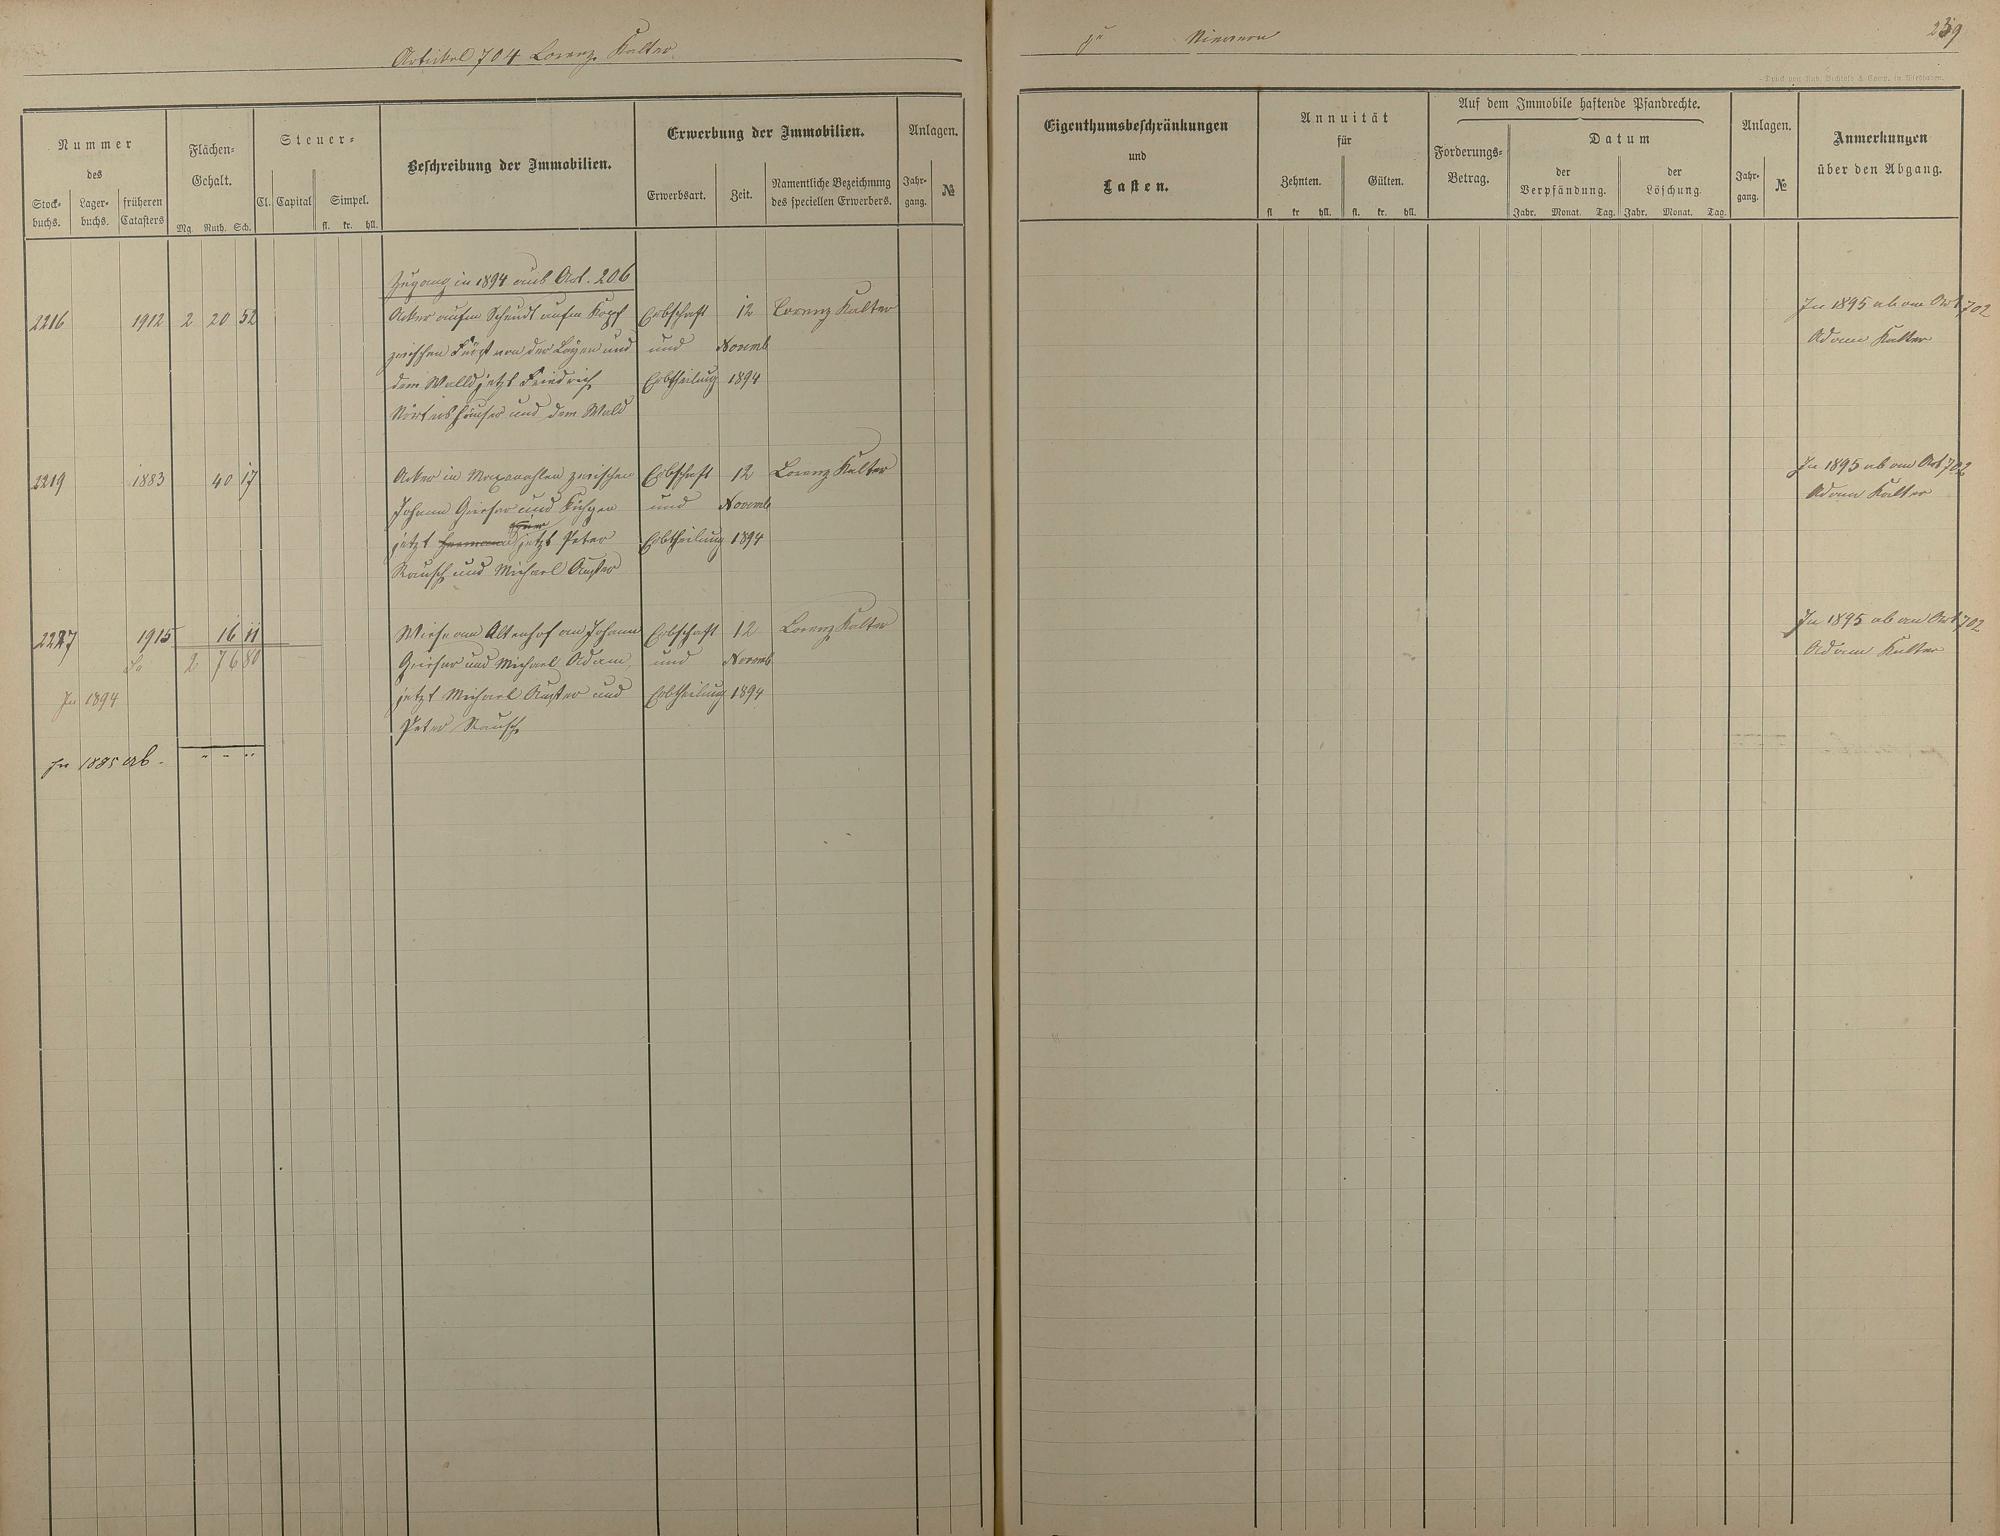 Artikel 704 Lorenz Kalter
zu Nievern
239
Druck von Rud. Bechtold & Comp. in Wiesbaden.
Nummer
des
Stock-
buchs.
Lager-
buchs.
früheren
Catasters
Flächen-
Gehalt.
Mg. Ruth. Sch.
Steuer-
Cl. Capital Simpel.
fl. kr. hll.
Beschreibung der Immobilien.
Erwerbung der Immobilien.
Erwerbsart. Zeit.
Namentliche Bezeichnung
des speciellen Erwerbers.
Anlagen.
Jahr-
gang.
№
Eigenthumsbeschränkungen
und
Lasten.
Annuität
für
Zehnten. Gülten.
fl kr hll. fl. kr. hll.
Auf dem Immobile haftende Pfandrechte.
Forderungs-
Betrag.
Datum
der
Verpfändung.
der
Löschung.
Jahr. Monat. Tag. Jahr. Monat. Tag.
Anlagen.
Jahr-
gang.
№
Anmerkungen
über den Abgang.
Zugang in 1894 aus Art. 206
2216 1912 2 20 52 Acker aufm Scheudt aufm Kopf Erbschaft 12 Lorenz Kalter In 1895 ab an Art 702
zwischen von der Leyen und und Novemb Adam Kalter
dem Wald jetzt Friedrich Erbtheilung 1894
Nörtershäuser und dem Wald
2219 1883 40 17 Acker in zwischen Erbschaft 12 Lorenz Kalter In 1895 ab an Art 702
Johann Gieser und und Novemb Adam Kalter
jetzt jetzt Peter Erbtheilung 1894
Rausch und Michael Auster
2227 1915 16 11 Wiese am Altenhof an Johann Erbschaft 12 Lorenz Kalter In 1895 ab an Art 702
Sa 2 76 80 Gieser und Michael Adam, und Novemb Adam Kalter
In 1894 jetzt Michael Auster und Erbtheilung 1894
Peter Rausch
In 1895 ab. " " "